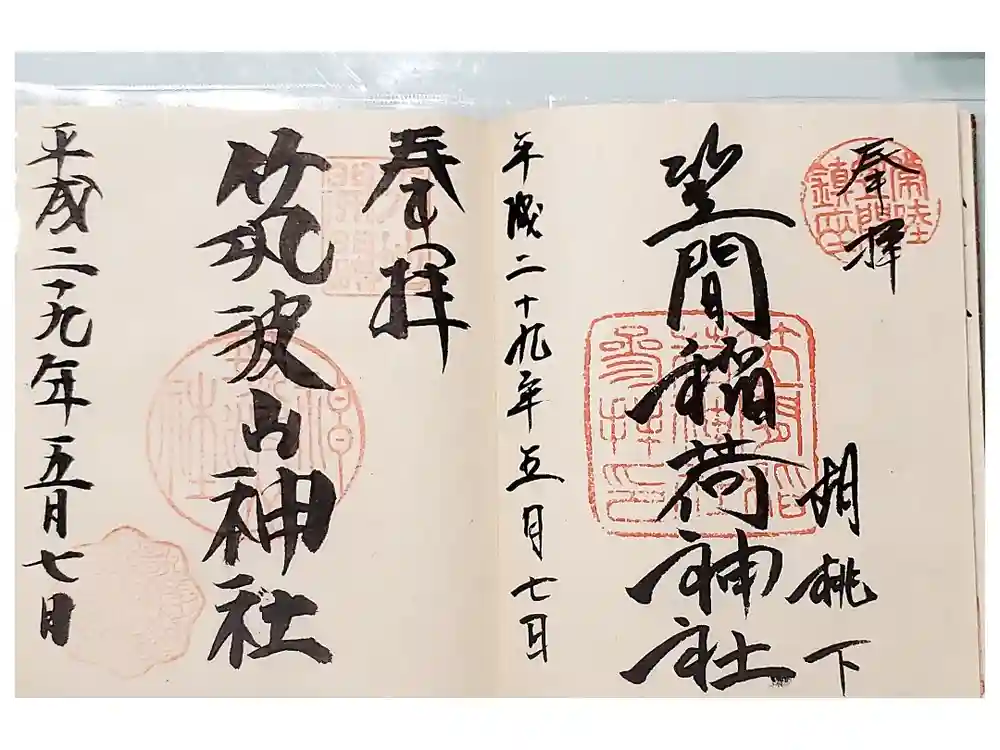 奉拝
常陸
笠間
鎮座
胡桃下
笠間稲荷神社
平成二十九年五月七日
奉拝
筑波山神社
平成二十九年五月七日